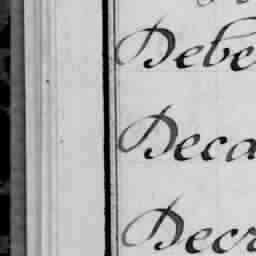 Debe
Deca
Decr